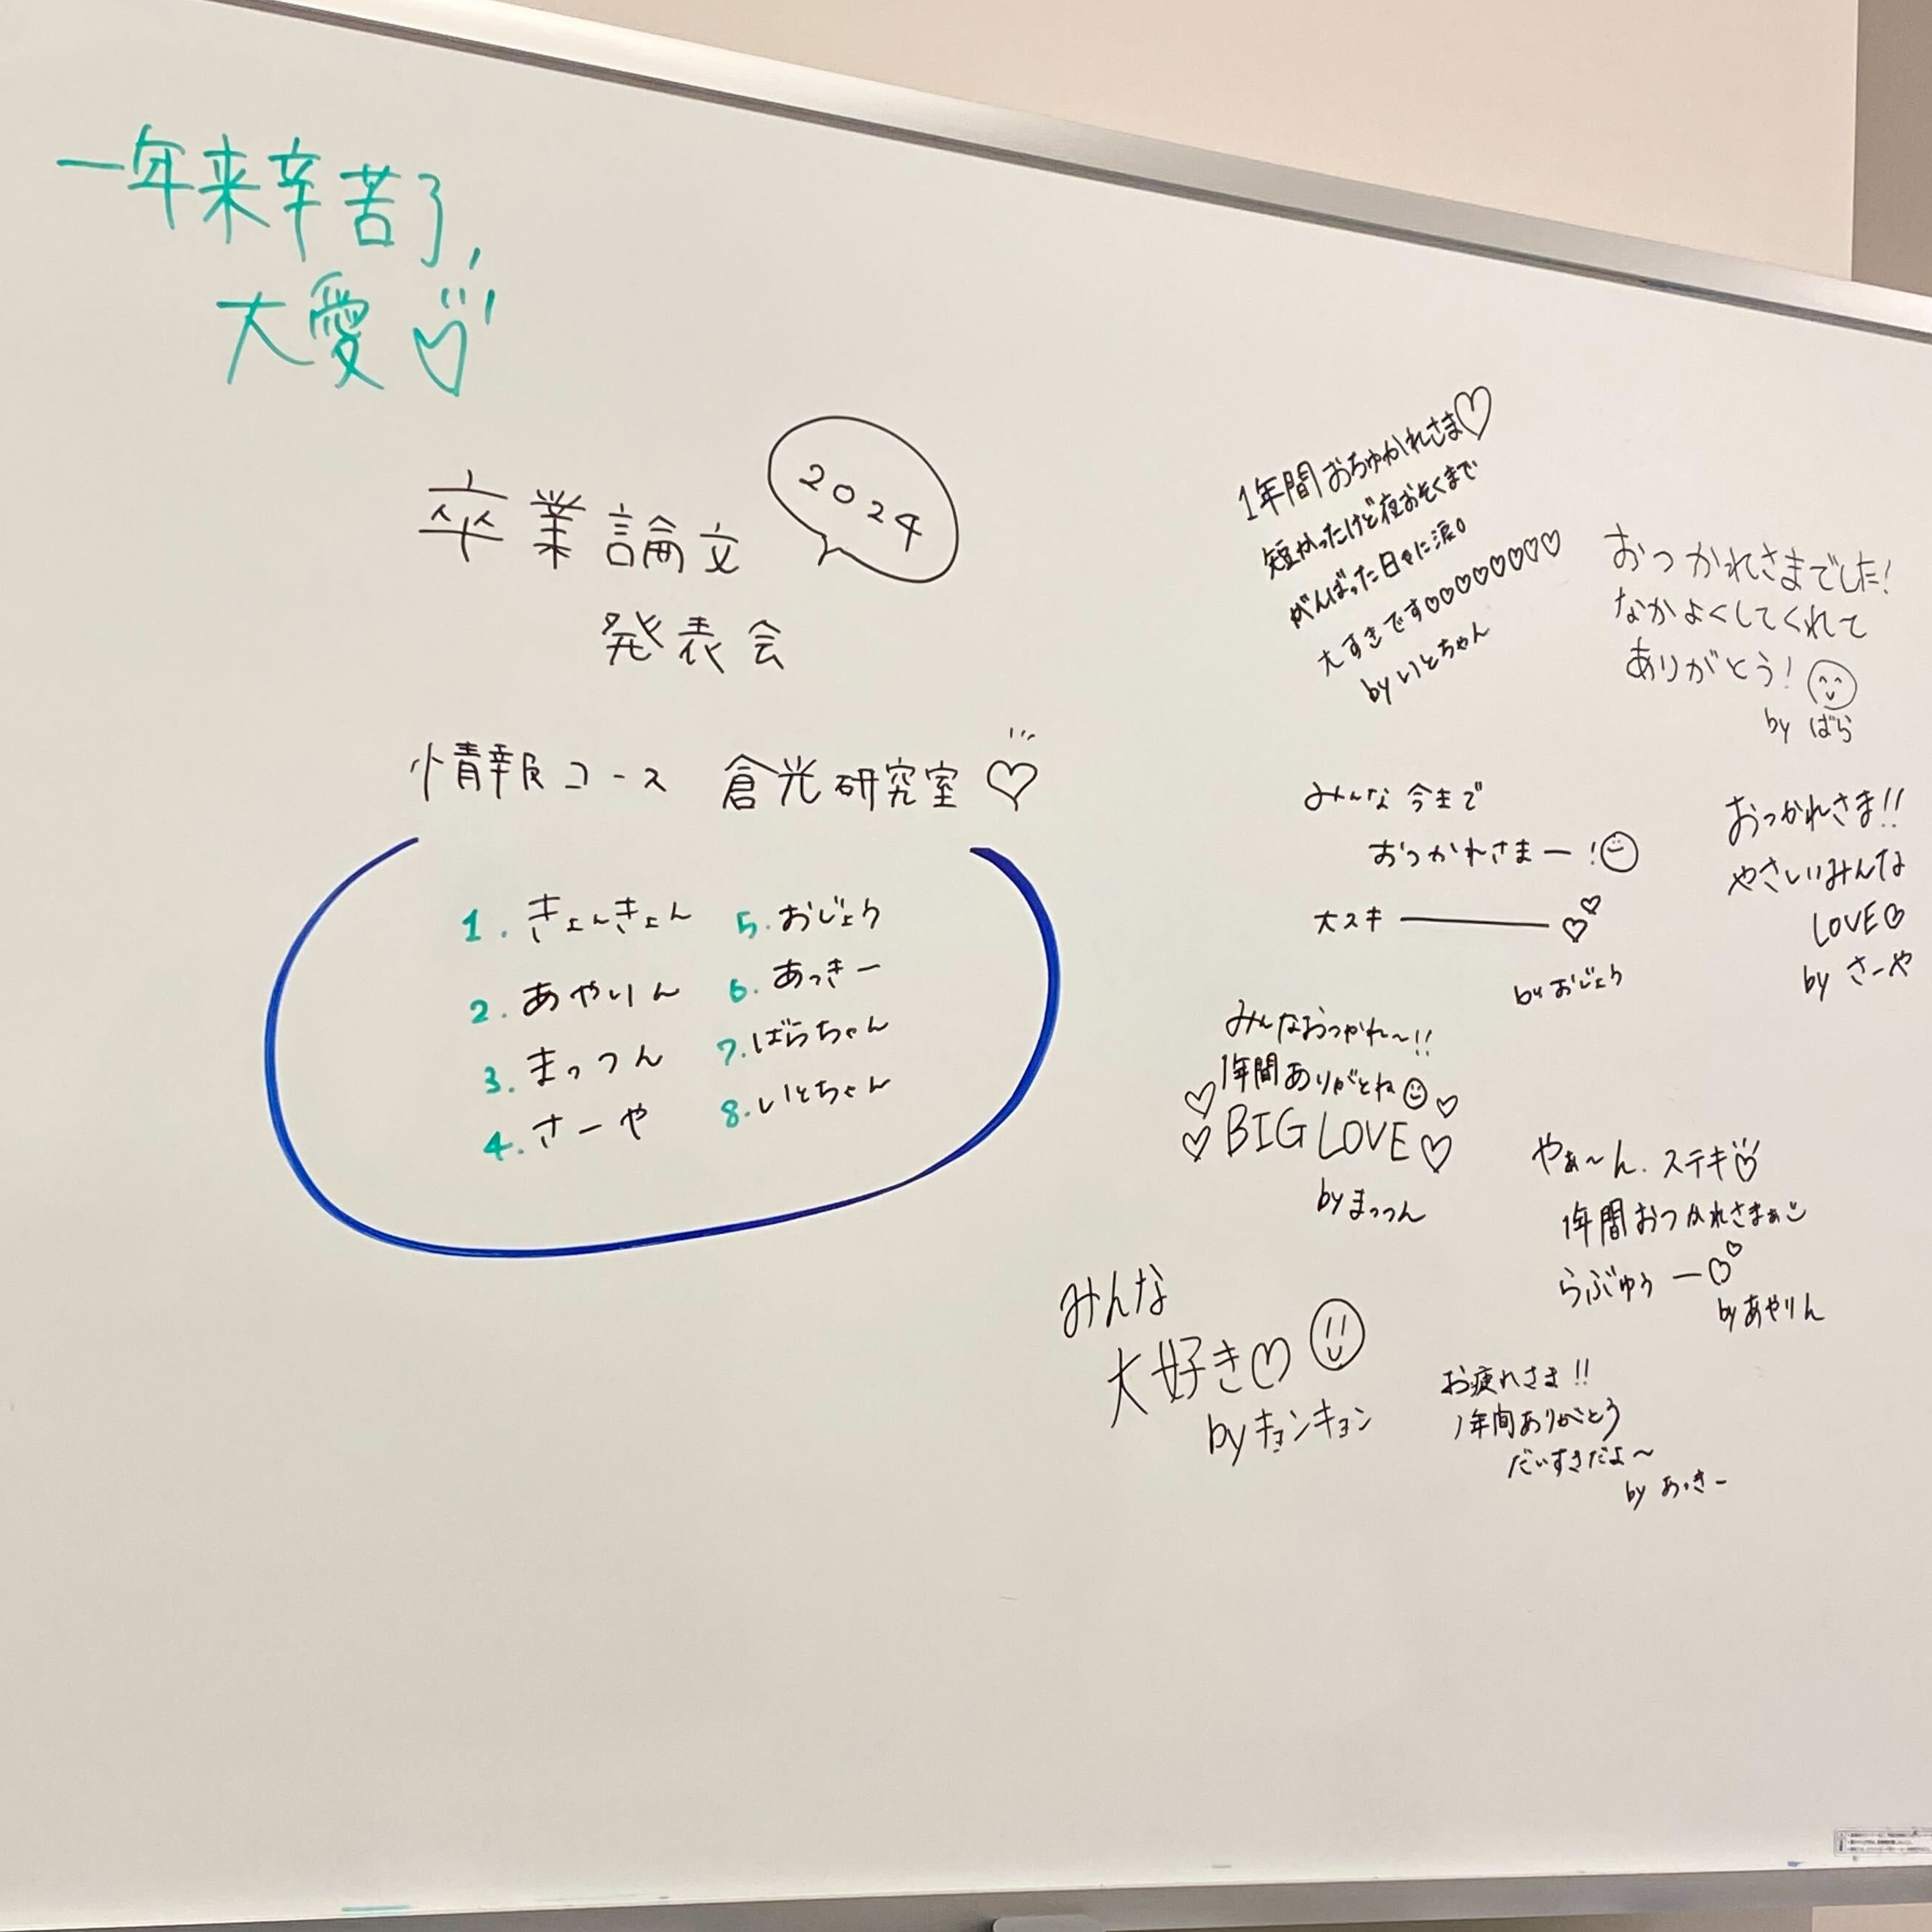 一年来辛苦了,
大愛♡
2024
卒業論文
発表会
情報コース 倉光研究室♡
1. きょんきょん
2. あやりん
3. まっつん
4. さーや
5. おじょう
6. あっきー
7. ばらちゃん
8. いとちゃん
1年間おちゅかれさま♡
短かったけど夜おそくまで
がんばった日々に涙。
大すきです♡♡♡♡♡♡♡♡♡
by いとちゃん
おつかれさまでした!
なかよくしてくれて
ありがとう!
by ばら
みんな 今まで
おつかれさまー!
大スキ ー♡♡
by おじょう
おつかれさま!!
やさしいみんな
LOVE♡
by さーや
みんなおつかれ〜!!
1年間ありがとね
♡BIG LOVE♡
by まっつん
やぁ〜ん. ステキ♡
1年間おつかれさまぁ
らぶゅぅー♡♡
by あやりん
みんな
大好き♡
by キョンキョン
お疲れさま!!
1年間ありがとう
だいすきだよ〜
by あっきー